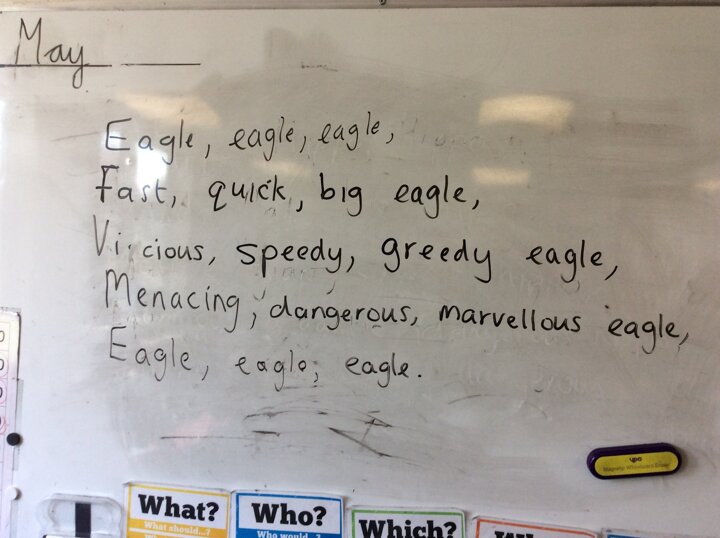 May
Eagle, eagle, eagle,
Fast, quick, big eagle,
Vicious, speedy, greedy eagle,
Menacing, dangerous, marvellous eagle,
Eagle, eagle, eagle.
ypo
Magnetic Whiteboard Eraser
What?
What should...?
Who?
Who would...?
Which?